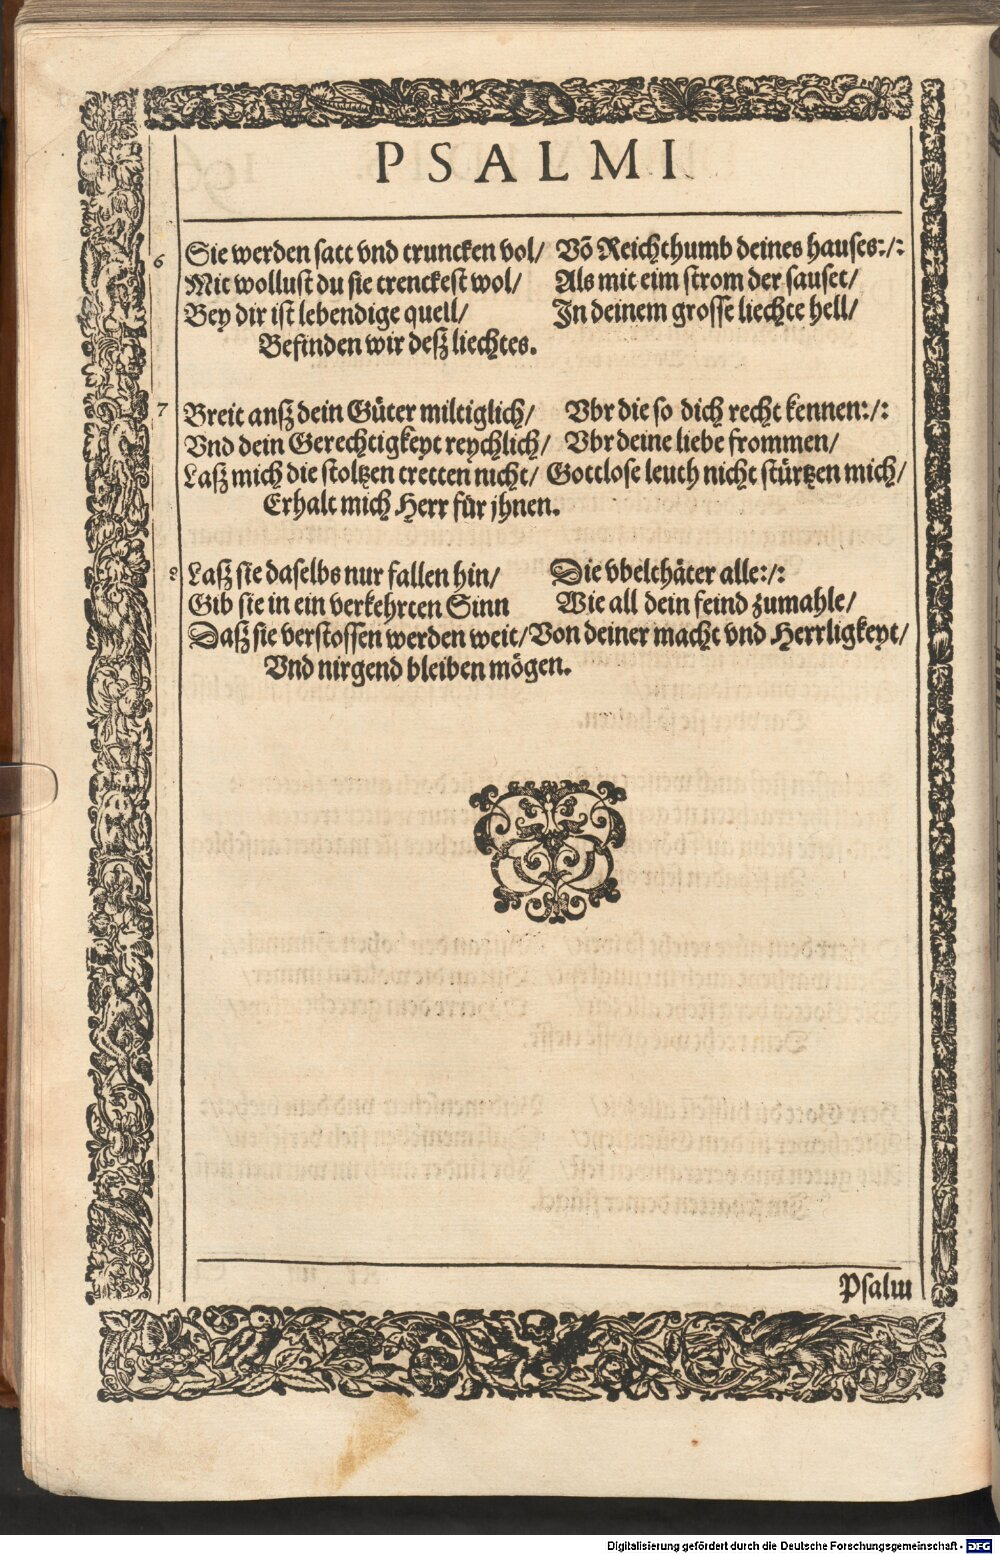 PSALMI
6 Sie werden satt vnd truncken vol/ Võ Reichthumb deines hauses:/:
Mit wollust du sie trenckest wol/ Als mit eim strom der sauset/
Bey dir ist lebendige quell/ In deinem grosse liechte hell/
Befinden wir desz liechtes.
7 Breit ansz dein Güter miltiglich/ Vbr die so dich recht kennen:/:
Vnd dein Gerechtigkeyt reychlich/ Vbr deine liebe frommen/
Lasz mich die stoltzen tretten nicht/ Gottlose leuth nicht stürtzen mich/
Erhalt mich Herr für jhnen.
Lasz sie daselbs nur fallen hin/ Die vbelthäter alle:/:
Gib sie in ein verkehrten Sinn Wie all dein feind zumahle/
Dasz sie verstossen werden weit/ Von deiner macht vnd Herrligkeyt/
Vnd nirgend bleiben mögen.
Psalm
Digitalisierung gefördert durch die Deutsche Forschungsgemeinschaft - DFG